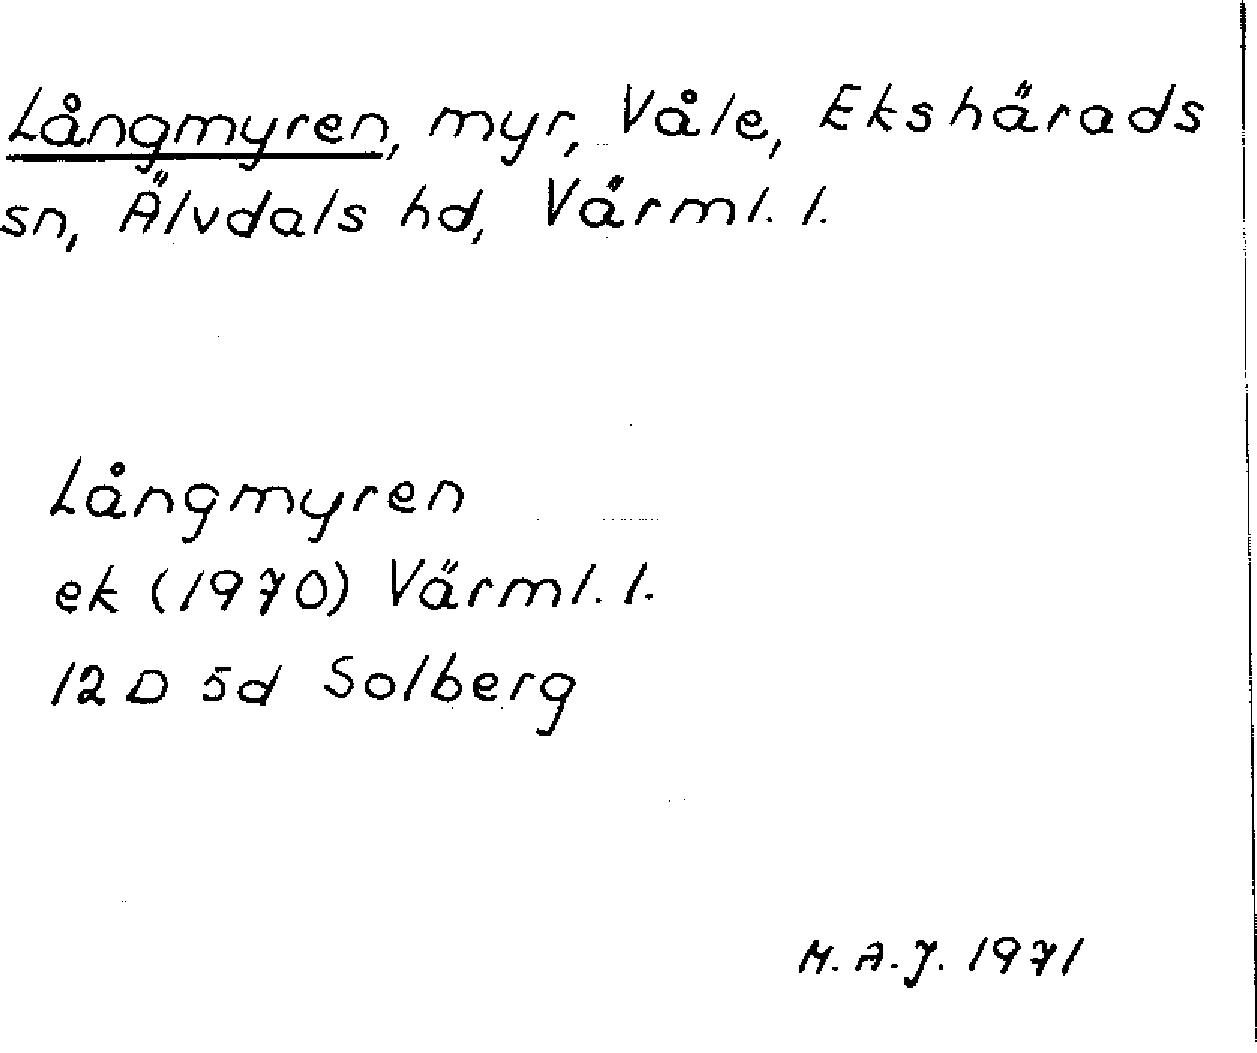 Långmyren, myr, Våle, Ekshärads
sn, Älvdals hd, Värml. l.
Långmyren
ek (1970) Värml. l.
12 D 5d Solberg
M. A. J. 1971